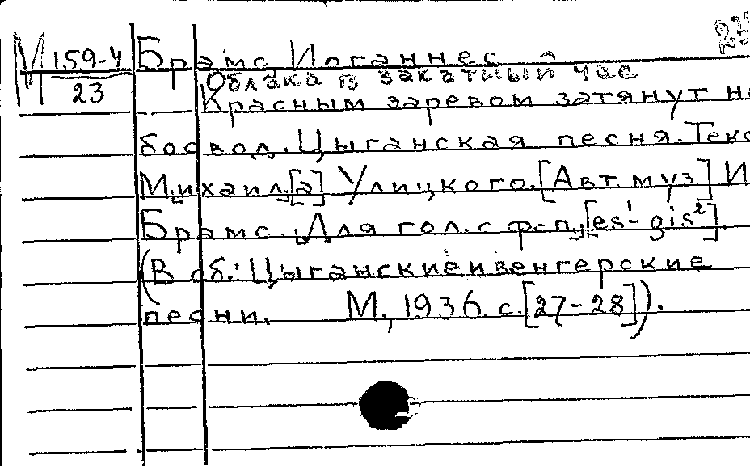 М 159-4 Брамс Иоганнес
23 Облака в закатный час
Красным заревом затянут не
босвод. Цыганская песня. Текс
Михаил[а] Улицкого. [Авт. муз] И
Брамс. Для гол. с ф-п. [es¹-gis²].
(В сб.: Цыганские и венгерские
песни. М., 1936. с. [27-28]).